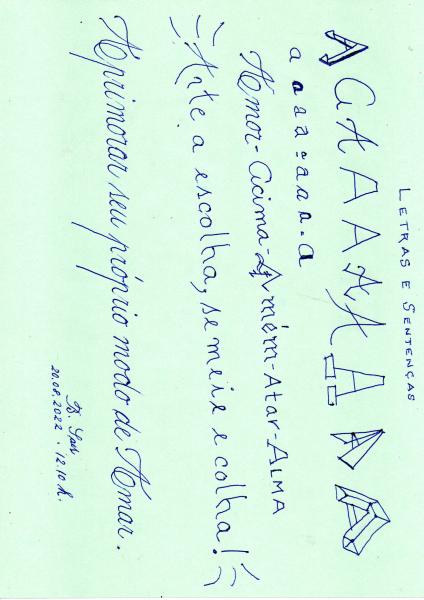 LETRAS E SENTENÇAS
A a A A A A A A A A
a a a a - a a a . a
Amor - Acima - Amém - Atar - ALMA
Ante a escolha, semeie e colha!
Aprimorar seu próprio modo de Amar.
20.08.2022 . 12.10 h.